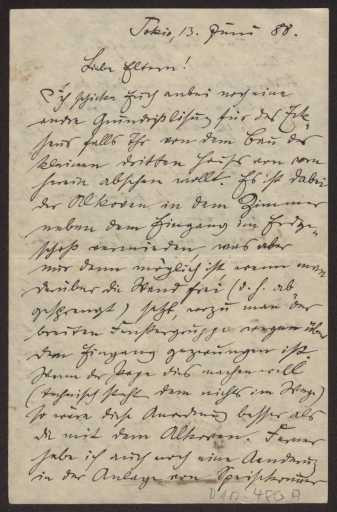 Tokio, 13. Juni 88.
Liebe Eltern!
Ich schicke Euch anbei noch eine
andre Grundrißlösung für das Eck-
haus falls Ihr von dem Bau des
kleinen dritten Hauses von vorn
herein absehen wollt. Es ist dabei
der Alkoven in dem Zimmer
neben dem Eingang im Erdge-
schoß vermieden was aber
nur dann möglich ist wenn man
darüber die Wand frei (d. h. ab
gesprengt) setzt, wozu man der
breiten Fenstergruppe wegen über
dem Eingang gezwungen ist.
Wenn der Papa dies machen will
(technisch steht dem nichts im Wege)
so wäre diese Anordnung besser als
die mit dem Alkoven. Ferner
habe ich auch noch eine Aenderung
in der Anlage von Speisekammer